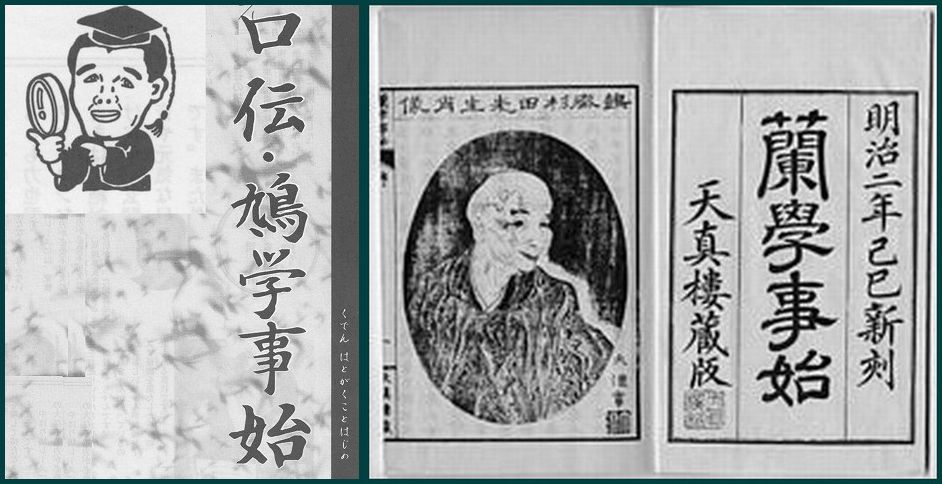 口伝・鳩学事始
くでん はとがくことはじめ
明治二年己巳新刻
蘭學事始
天真樓蔵版
鷧齋杉田先生肖像